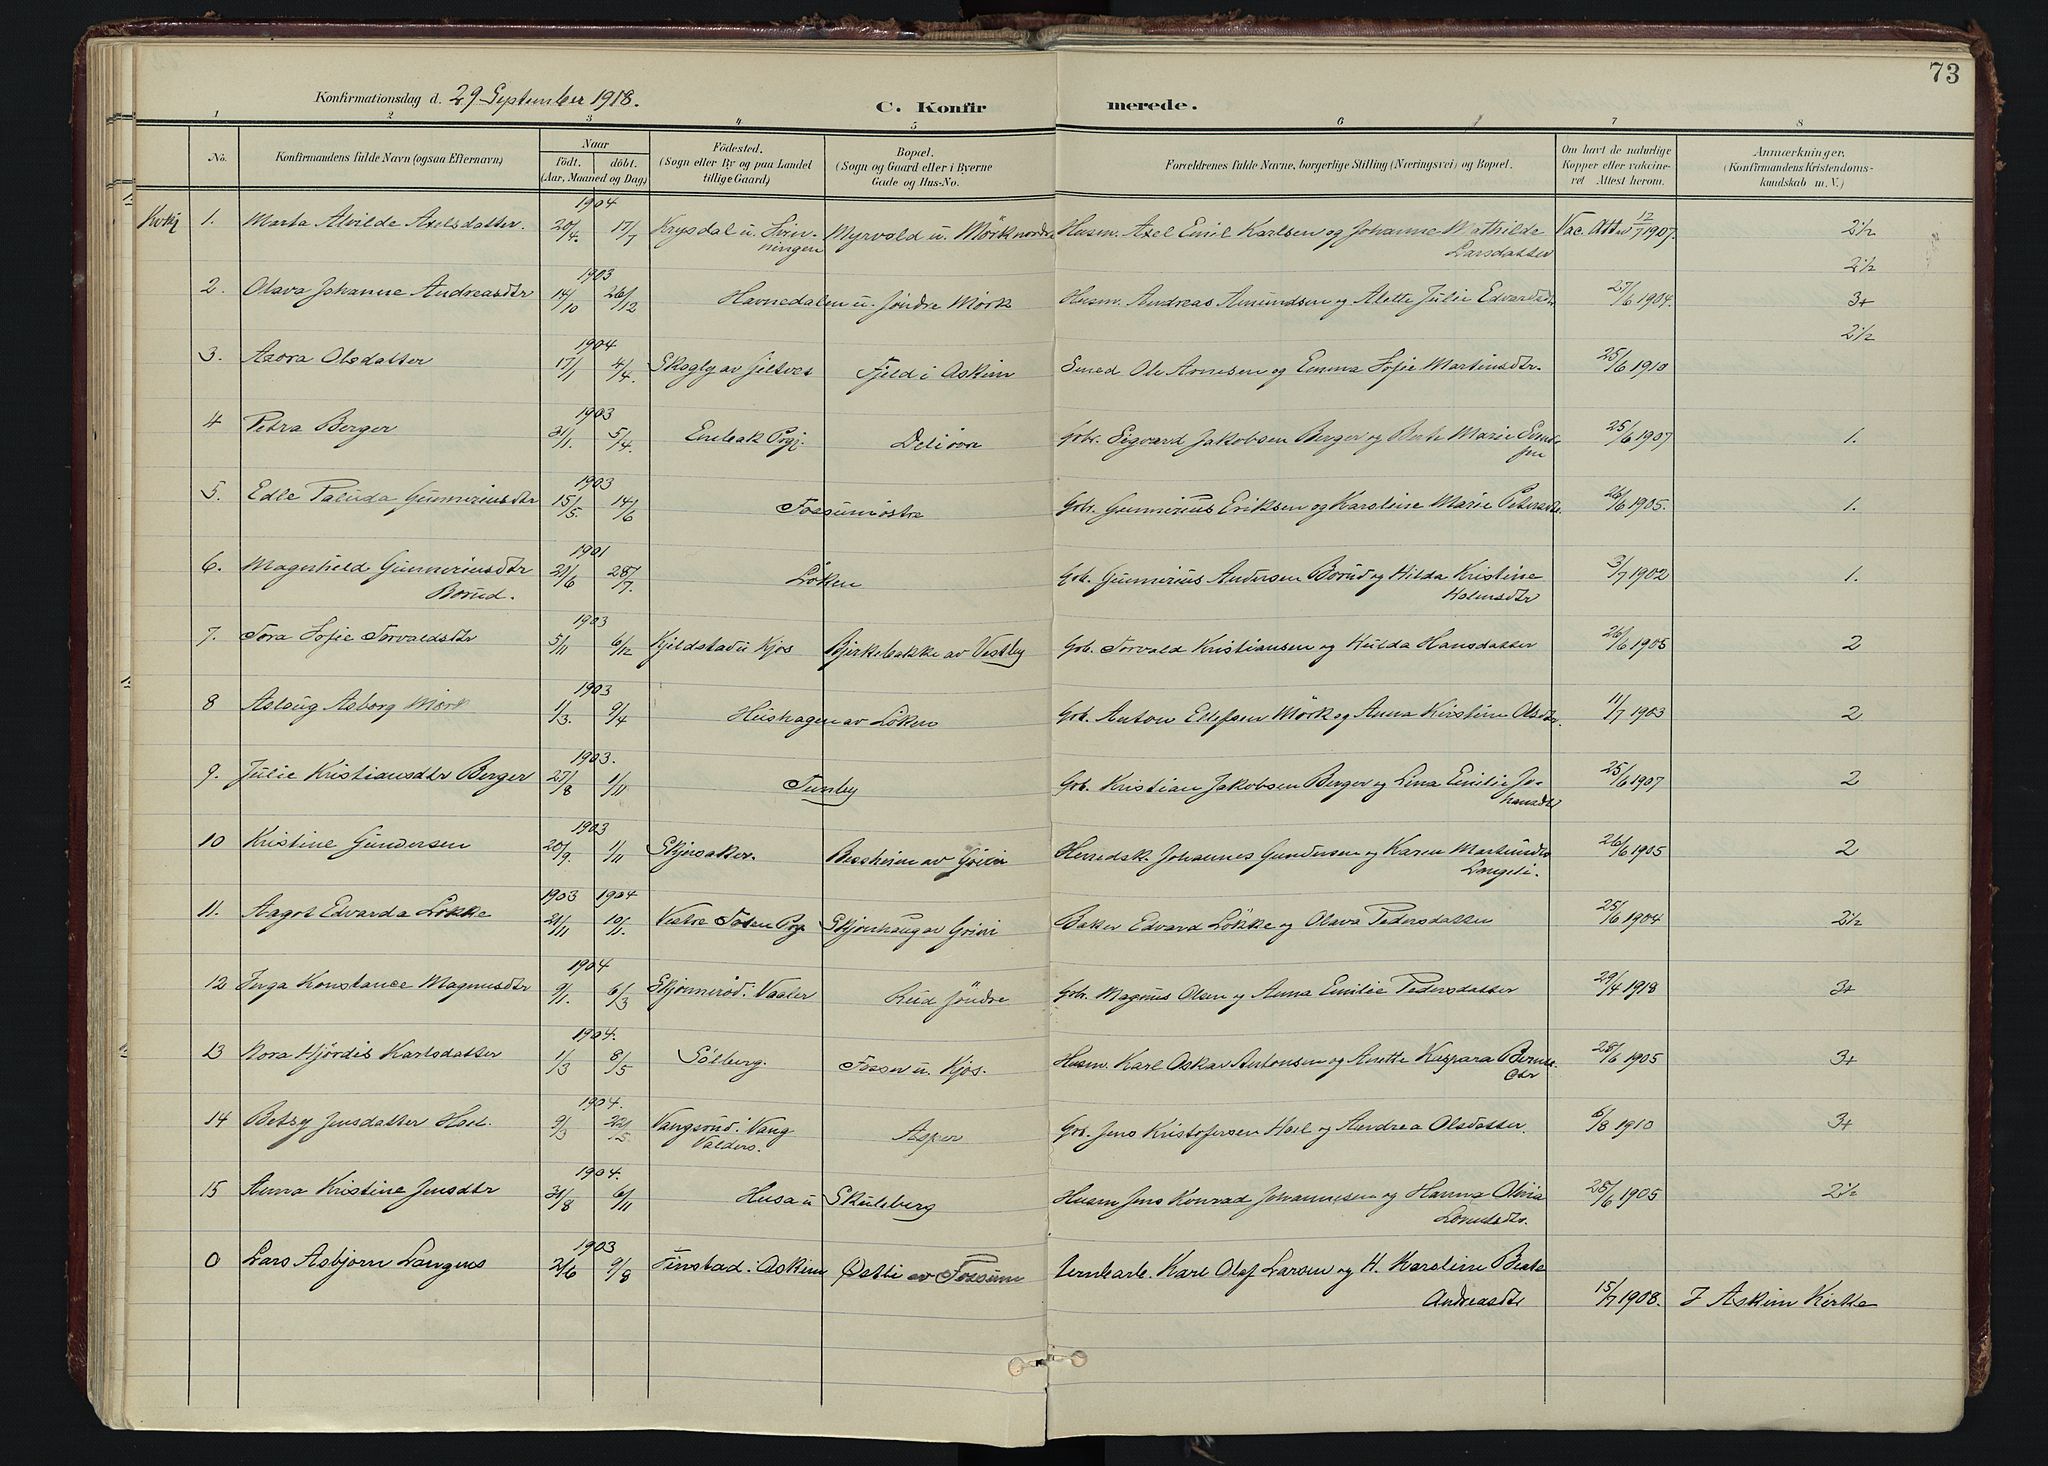 73
Konfirmationsdag d. 29 September 1918.
C. Konfirmerede.
1 2 3 4 5 6 7 8
No. Konfirmandens fulde Navn (ogsaa Efternavn) Naar födt. döbt. (Aar, Maaned og Dag) Födested. (Sogn eller By og paa Landet tillige Gaard) Bopæl. (Sogn og Gaard eller i Byerne Gade og Hus-No. Forældrenes fulde Navne, borgerlige Stilling (Næringsvei) og Bopæl. Om havt de naturlige Kopper eller vakcineret Attest herom. Anmærkninger. (Konfirmandens Kristendomskundskab m. V.)
1904
1. Marta Alvilde Axelsdatter. 20/4. 17/7 Krysdal u. Myrvold u. Mörk nordre Husm. Axel Emil Karlsen og Johanne Mathilde Vac. Att. 12/7 1907. 2½
Larsdatter
2½
1903
2. Olava Johanne Andreasdtr 14/10 26/12 Havnedalen u. Söndre Mörk Husm. Andreas Amundsen og Alette Julie Edvardsdtr 27/6 1904. 3+
2½
1904
3. Aaora Olsdatter 17/1 4/4. Skogly av Fjeld i Askim Smed Ole Arnesen og Emma Sofie Martinsdtr. 25/6 1910
1903
4 Petra Berger 31/1. 5/4. Enebak Pgj. Gbr. Sigvard Jakobsen Berger og Berte Marie 25/6 1907 1.
1903
5. Edle Palüda Günneriusdtr 15/5. 14/6 Fossum östre Gbr. Gunnerius Eriksen og Karoline Marie Petersdtr. 26/6 1905. 1.
1901
6. Magnhild Günneriusdtr 21/6 28/7. Löken Gbr. Günnerius Andersen Borud og Hilda Kristine 3/7 1902 1.
Borüd. Holmsdtr
1903
7. Tora Sofie Torvaldsdtr 5/11 6/12 Kjeldstad u Kjos Bjirkebakke av Vestby Gbr. Torvald Kristiansen og Hulda Hansdatter 26/6 1905 2
1903
8 Aslaug Asborg Mörk 1/3. 9/4 Hushagen av Löken Gbr. Anton Ellefsen Mörk og Anna Kirstine Olsdtr. 11/7 1903 2
1903.
9. Julie Kristiansdtr Berger 27/8 1/11 Tunby Gbr. Kristian Jakobsen Berger og Lina Emilie Jo- 25/6 1907 2
hansdtr
1903
10 Kristine Gundersen 20/9. 1/11 Skjersaker. Bessheim av Herredsk. Johannes Gundersen og Karen Martinsdtr 26/6 1905 2
Langeli.
1903 1904
11. Aagot Edvarda Lökke 21/11 10/1. Vestre Toten Pgj. Skjönhaug av Baker Edvard Lökke og Olava Pedersdatter 25/6 1904 2½
1904
12 Inga Konstance Magnusdtr 9/1. 6/3 Skjönneröd. Vaaler Rud söndre Gbr. Magnus Olsen og Anna Emilie Pedersdatter 29/4 1918 3+
1904.
13 Nora Hjördis Karlsdatter 1/3 8/5 Solberg. Fosser u. Kjos. Husm. Karl Oskar Antonsen og Anette Kaspara 28/6 1905 3+
1904.
14 Betsy Jensdatter Hoel. 9/3 22/5 Vangsund. Vang Asper Gbr. Jens Kristofersen Hoel og Andrea Olsdatter. 6/8 1910 3+
Valders.
1904.
15 Anna Kristine Jensdtr 31/8 6/11 Husa u Skuleberg Husm Jens Konrad Johannesen og Hanna Olivia 25/6 1905 2½
1903
0 Lars Asbjorn Langnes 2/6 9/8 Finstad i Askim Östli av Fossum Jernbarb. Karl Olaf Larsen og H. Karoline Beate
Andreasdtr 15/7 1908. I Askim Kirke